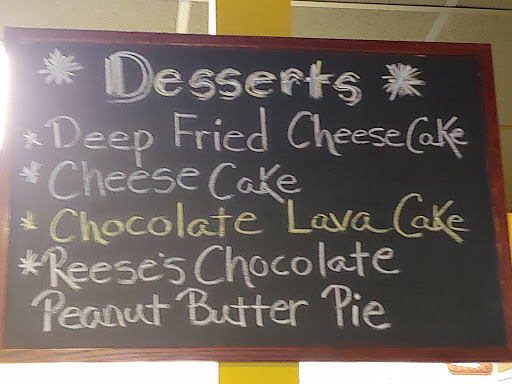 * Desserts *
* Deep Fried CheeseCake
* Cheese Cake
* Chocolate Lava Cake
* Reese's Chocolate
Peanut Butter Pie